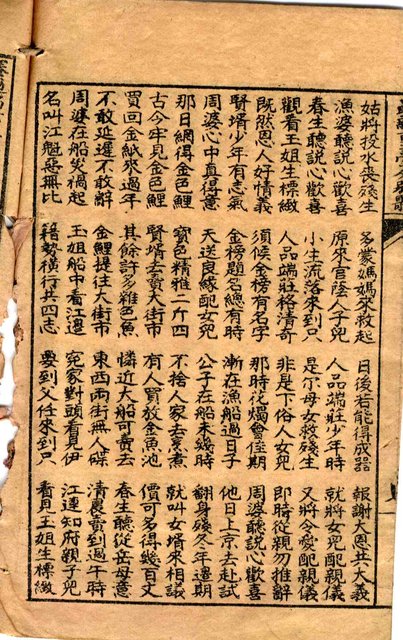 姑將投水喪殘生 多蒙媽媽來救起 日後若能得成器 報謝大恩共大義
漁婆聽說心歡喜 原來官蔭人子兒 人品端莊少年時 就將女兒配親儀
春生聽說心歡喜 小生流落來到只 是尔母女救殘生 又將令愛配親儀
觀看玉姐生標緻 人品端莊格清奇 非是下俗人女兒 即時從親勿推辭
既然恩人好情義 須候金榜有名字 那時花燭會佳期 周婆聽說心歡喜
賢婿少年有志氣 金榜題名總有時 漸在漁船過日子 他日上京去赴試
周婆心中真得意 天送良緣配女兒 公子在船未幾時 翻身殘冬年邊期
那日網得金色鯉 寶色精雅二斤四 不捨人家去烹煮 就叫女婿來相議
古今罕見金色鯉 賢婿去賣大街市 有人買放金魚池 價可多得幾百文
買回金紙來過年 其餘許多雜色魚 憐近大船可賣去 春生聽從岳母意
不敢延遲不敢辭 金鯉提往大街市 東西兩街無人碟 清晨賣到過午時
周婆在船失禍起 玉姐船中看江邊 冤家對頭看見伊 江連知府親子兒
名叫江魁惡無比 藉勢橫行共四志 要到父任來到只 看見玉姐生標緻